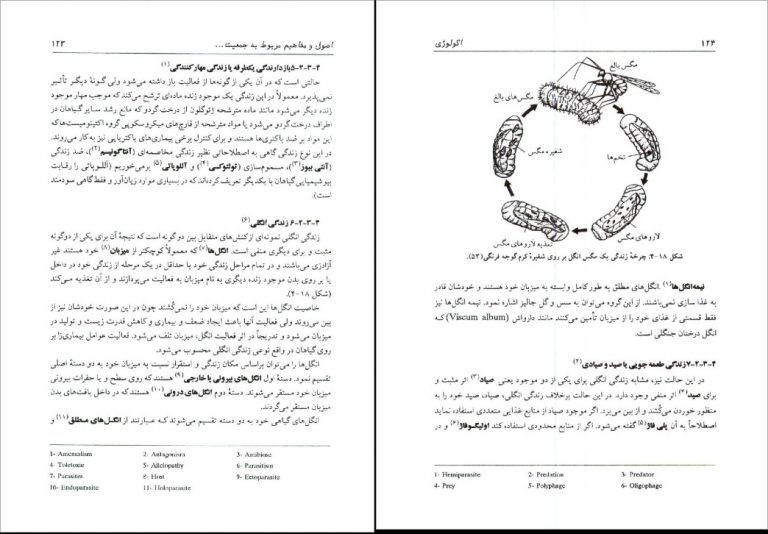 ۱۲۳ اصول و مفاهیم مربوط به جمعیت...
۴-۳-۲-۵ بازدارندگی یکطرفه یا زندگی مهارکنندگی (۱)
حالتی است که در آن یکی از گونه‌ها از فعالیت باز داشته می‌شود ولی گونهٔ دیگر تأثیر
نمی‌پذیرد. معمولاً در این زندگی یک موجود زنده ماده‌ای ترشح می‌کند که موجب مهار موجود
زنده دیگر می‌شود مانند ماده مترشحه ژوگلون از درخت گردو که مانع رشد سایر گیاهان در
اطراف درخت گردو می‌شود یا مواد مترشحه از قارچ‌های میکروسکوپی گروه اکتینومیست‌ها که
این مواد بر ضد باکتری‌ها هستند و برای کنترل برخی بیماری‌های باکتریایی نیز به کار می‌روند.
در این نوع زندگی گاهی به اصطلاحاتی نظیر زندگی مخاصمه‌ای (آنتاگونیسم (۲))، ضد زندگی
(آنتی بیوز (۳))، مسموم‌سازی (تولتوکسی (۴) و آللوپاتی (۵) برمی‌خوریم (آللوپاتی را رقابت
بیوشیمیایی گیاهان با یکدیگر تعریف کرده‌اند که در بسیاری موارد زیان‌آور و فقط گاهی سودمند
است).
۴-۳-۲-۶ زندگی انگلی (۶)
زندگی انگلی نمونه‌ای از کنش‌های متقابل بین دو گونه است که نتیجهٔ آن برای یکی از دو گونه
مثبت و برای دیگری منفی است. انگل‌ها (۷) که معمولاً کوچکتر از میزبان (۸) خود هستند غیر
آزادزی می‌باشند و در تمام مراحل زندگی خود یا حداقل در یک مرحله از زندگی خود در داخل
یا بر روی بدن موجود زنده دیگری به نام میزبان به فعالیت می‌پردازند و از آن تغذیه می‌کند
(شکل ۱۸-۴).
خاصیت انگل‌ها این است که میزبان خود را نمی‌کُشند چون در این صورت خودشان نیز از
بین می‌روند ولی فعالیت آنها باعث ایجاد ضعف و بیماری و کاهش قدرت زیست و تولید در
میزبان می‌شود و تدریجاً در اثر فعالیت انگل، میزبان تلف می‌شود. فعالیت عوامل بیماری‌زا بر
روی گیاهان در واقع نوعی زندگی انگلی محسوب می‌شود.
انگل‌ها را می‌توان براساس مکان زندگی و استقرار نسبت به میزبان خود به دو دستهٔ اصلی
تقسیم نمود. دستهٔ اول انگل‌های بیرونی یا خارجی (۹) هستند که روی سطح و یا حفرات بیرونی
میزبان خود مستقر می‌شوند. دستهٔ دوم انگل‌های درونی (۱۰) هستند که در داخل بافت‌های بدن
میزبان مستقر می‌گردند.
انگل‌های گیاهی خود به دو دسته تقسیم می‌شوند که عبارتند از انگل‌های مطلق (۱۱) و
1- Amensalism 2- Antagonism 3- Antibiose
4- Toletoxie 5- Allelopathy 6- Parasition
7- Parasites 8- Host 9- Ectoparasite
10- Endoparasite 11- Holoparasite
۱۲۴ اکولوژی
مگس بالغ
مگس‌های بالغ
شفیره مگس
تخم‌ها
لاروهای مگس
تغذیه لاروهای مگس
شکل ۱۸-۴. چرخهٔ زندگی یک مگس انگل بر روی شفیرهٔ کرم گوجه فرنگی (۵۳).
نیمه‌انگل‌ها (۱). انگل‌های مطلق به طور کامل وابسته به میزبان خود هستند و خودشان قادر
به غذا سازی نمی‌باشند. از این گروه می‌توان به سس و گل جالیز اشاره نمود. نیمه انگل‌ها نیز
فقط قسمتی از غذای خود را از میزبان تأمین می‌کنند مانند دارواش (Viscum album) که
انگل درختان جنگلی است.
۴-۳-۲-۷ زندگی طعمه جویی یا صید و صیادی (۲)
در این حالت نیز، مشابه زندگی انگلی برای یکی از دو موجود یعنی صیاد (۳) اثر مثبت و
برای صید (۴) اثر منفی وجود دارد. در این حالت برخلاف زندگی انگلی، صیاد، صید خود را به
منظور خوردن می‌کُشد و از بین می‌برد. اگر موجود صیاد از منابع غذایی متعددی استفاده نماید
اصطلاحاً به آن پلی فاژ (۵) گفته می‌شود. اگر از منابع محدودی استفاده کند اولیگوفاژ (۶) و در
1- Hemiparasite 2- Predation 3- Predator
4- Prey 5- Polyphage 6- Oligophage